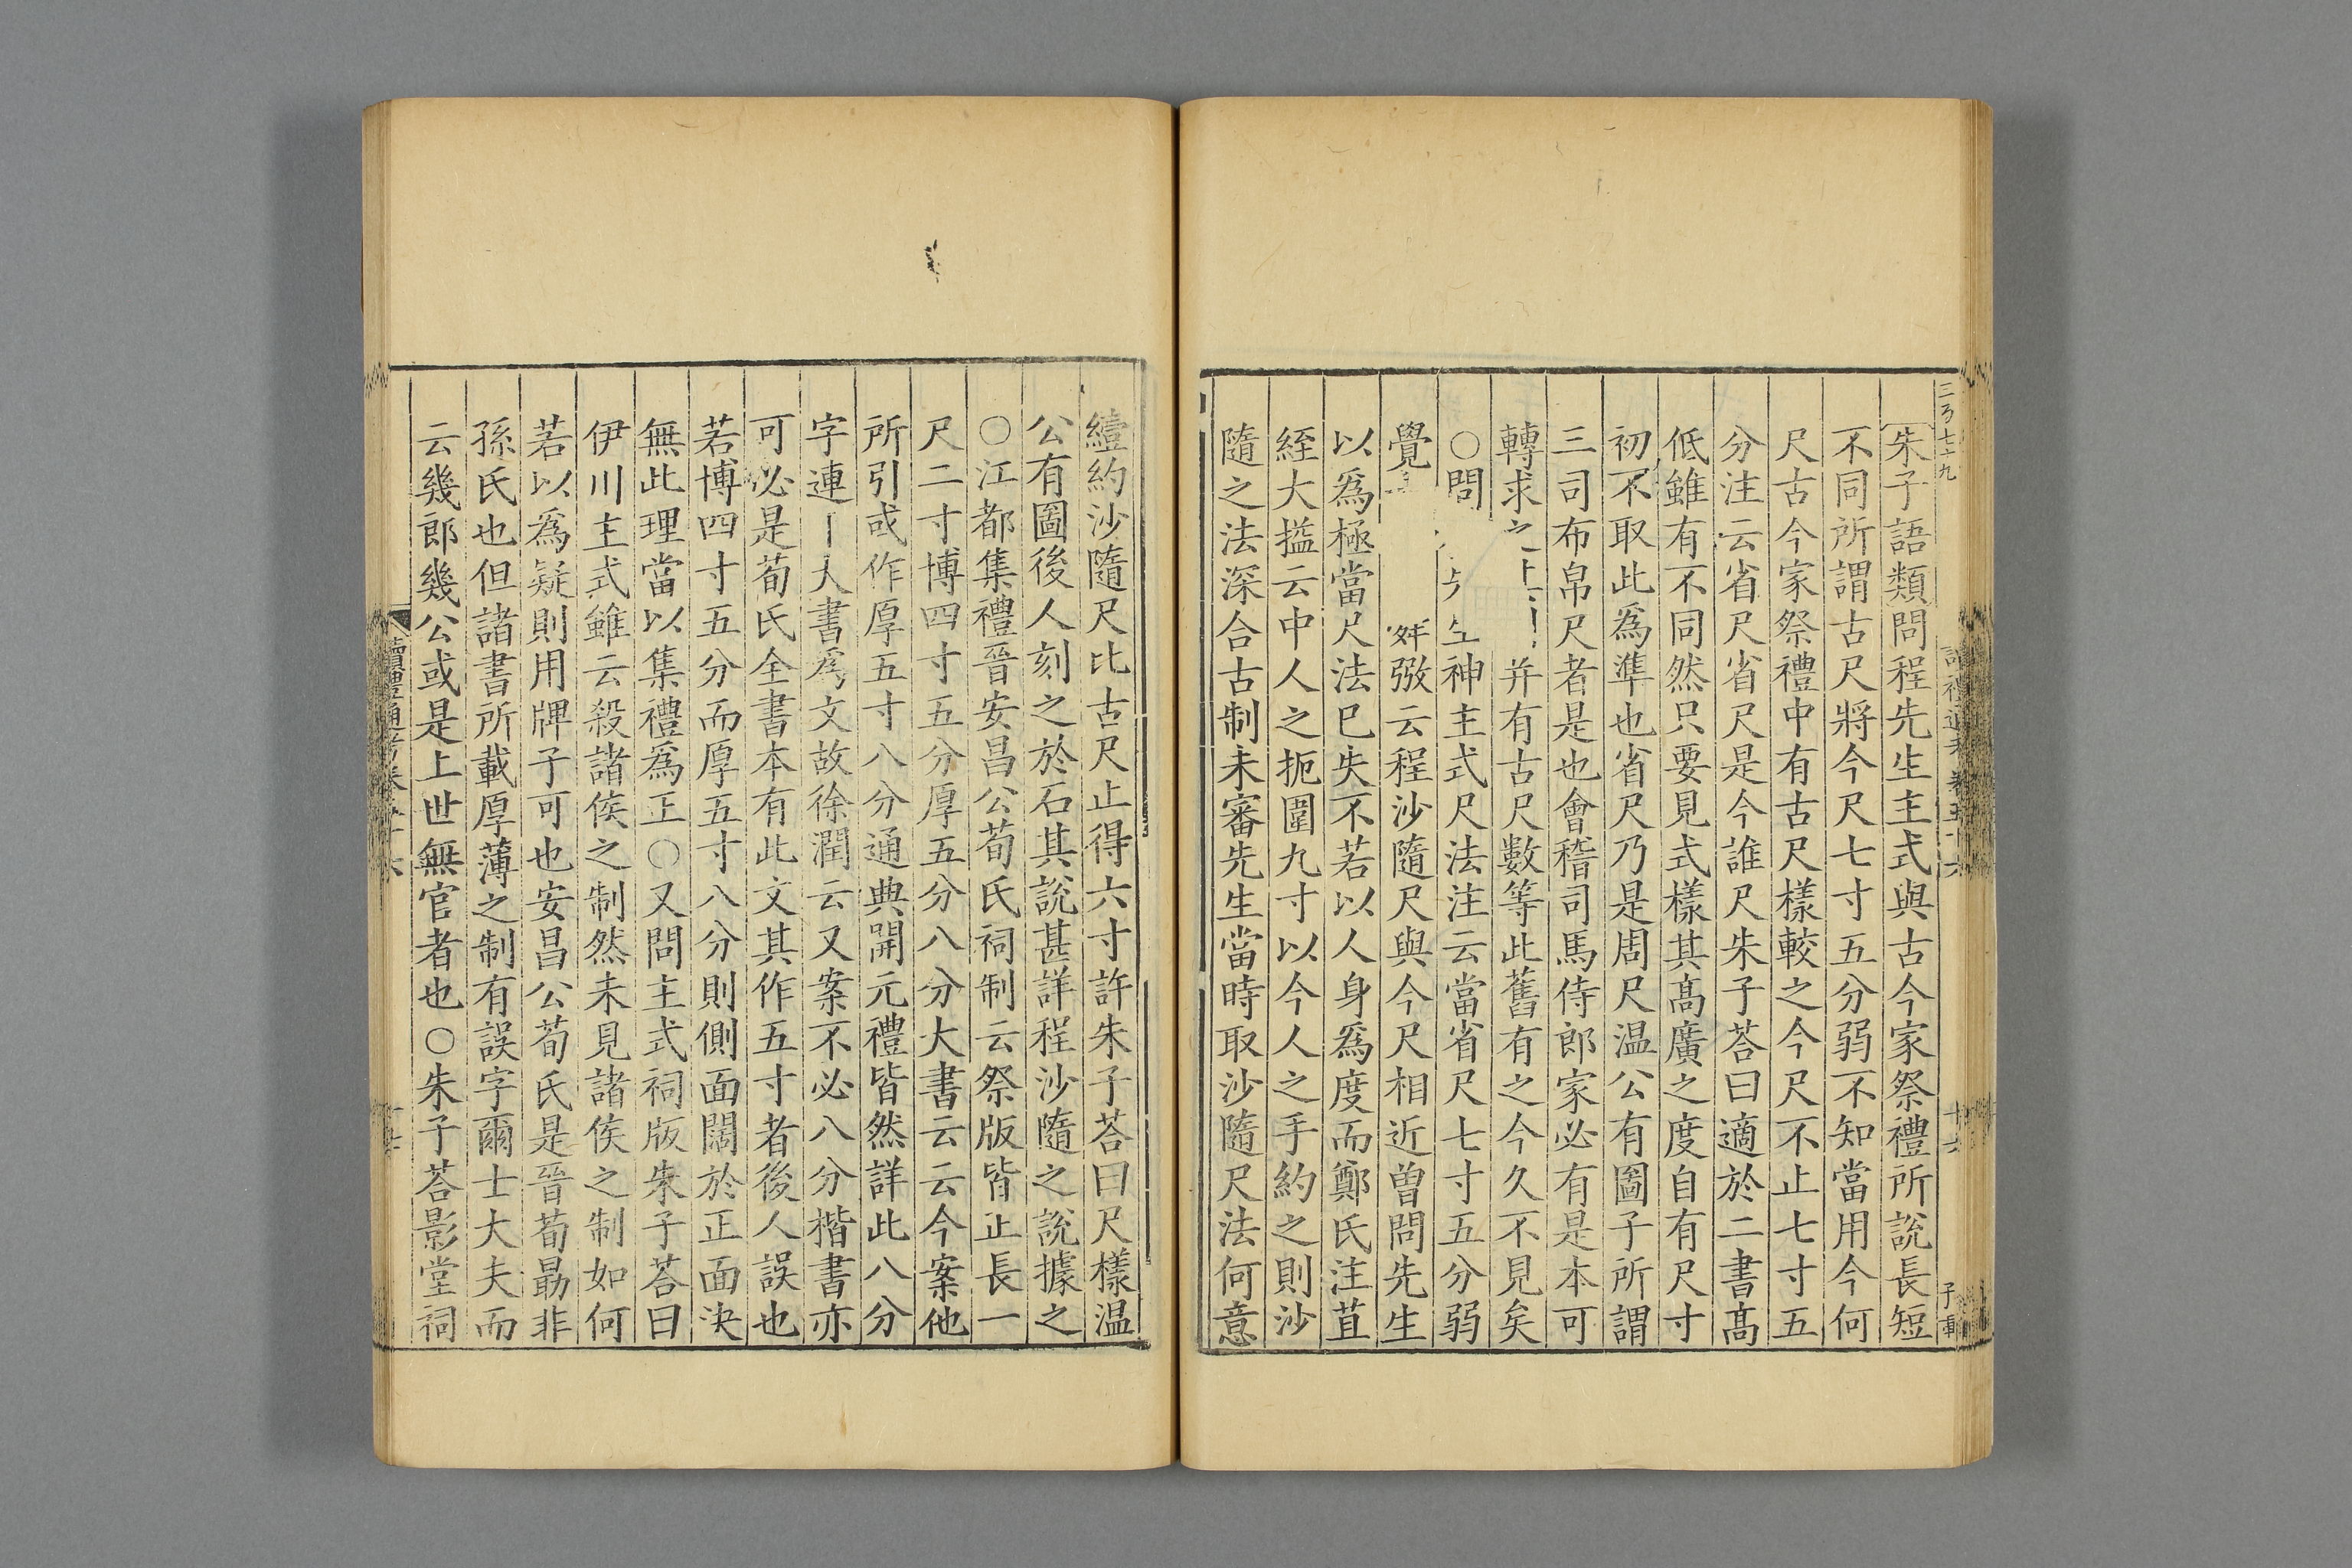 朱子語類問程先生主式與古今家祭禮所說長短
不同所謂古尺將今尺七寸五分弱不知當用今何
尺古今家祭禮中有古尺樣較之今尺不止七寸五
分注云省尺省尺是今誰尺朱子荅曰適於二書髙
低雖有不同然只要見式樣其髙廣之度自有尺寸
初不取此爲準也省尺乃是周尺温公有圖子所謂
三司布帛尺者是也會稽司馬侍郎家必有是本可
轉求之 并有古尺數等此舊有之今久不見矣
○問 神主式尺法注云當省尺七寸五分弱
覺 弢云程沙隨尺與今尺相近曾問先生
以爲極當尺法已失不若以人身爲度而鄭氏注苴
絰大搤云中人之扼圍九寸以今人之手約之則沙
隨之法深合古制未審先生當時取沙隨尺法何意
續約沙隨尺比古尺止得六寸許朱子荅曰尺樣温
公有圖後人刻之於石其說甚詳程沙隨之說據之
○江都集禮晉安昌公荀氏祠制云祭版皆正長一
尺二寸博四寸五分厚五分八分大書云云今案他
所引或作厚五寸八分通典開元禮皆然詳此八分
字連 大書爲文故徐潤云又案不必八分楷書亦
可必是荀氏全書本有此文其作五寸者後人誤也
若博四寸五分而厚五寸八分則側面闊於正面決
無此理當以集禮爲正○又問主式祠版朱子荅曰
伊川主式雖云殺諸侯之制然未見諸侯之制如何
若以爲疑則用牌子可也安昌公荀氏是晉荀勗非
孫氏也但諸書所載厚薄之制有誤字爾士大夫而
云幾郎幾公或是上世無官者也○朱子荅影堂祠
讀禮通考卷五十六